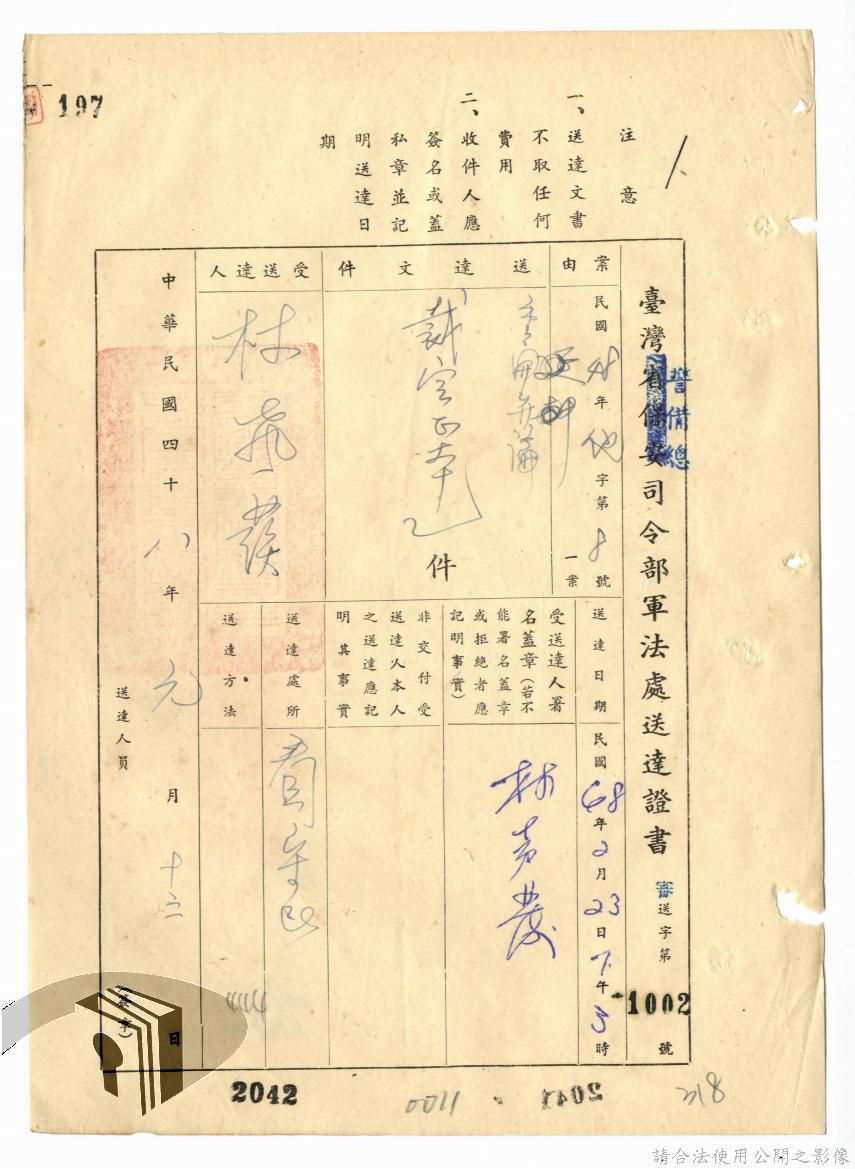 197
注意
一、送達文書
不取任何
費用
二、收件人應
簽名或蓋
私章並記
明送達日
期
臺灣省保安司令部軍法處送達證書
警備總
審送字第1002號
案由
民國48年他字第8號
一案
送達文件
裁定正本乙
件
受送達人
林
發
送達日期
民國68年2月23日下午3時
受送達人署
名蓋章(若不
能署名蓋章
或拒絕者應
記明事實)
林
發
非交付受
送達人本人
之送達應記
明其事實
送達處所
看守所
送達方法
中華民國四十八年元月十三日
送達人員
(簽章)
2042
0011
2041
218
請合法使用公開之影像